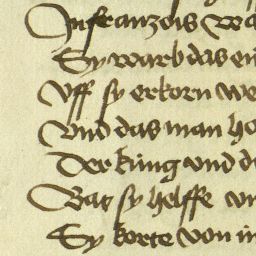 In franzois wa
Sy warb das en
Uff sy erkorn we
Und das man ho
Der kung und di
Bat sy helffe un
Sy korte von in